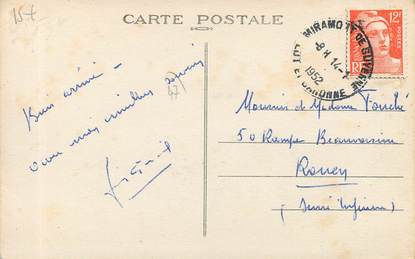 157
CARTE POSTALE
MIRAMONT DE GUYENNE
8 H 14-
1952
LOT ET GARONNE
12F
POSTES
RF
Bien arrivé -
mes meilleurs souvenirs
(47)
Monsieur et Madame Fouché
50 Rampe Beauvoisine
Rouen
(Seine Inférieure)